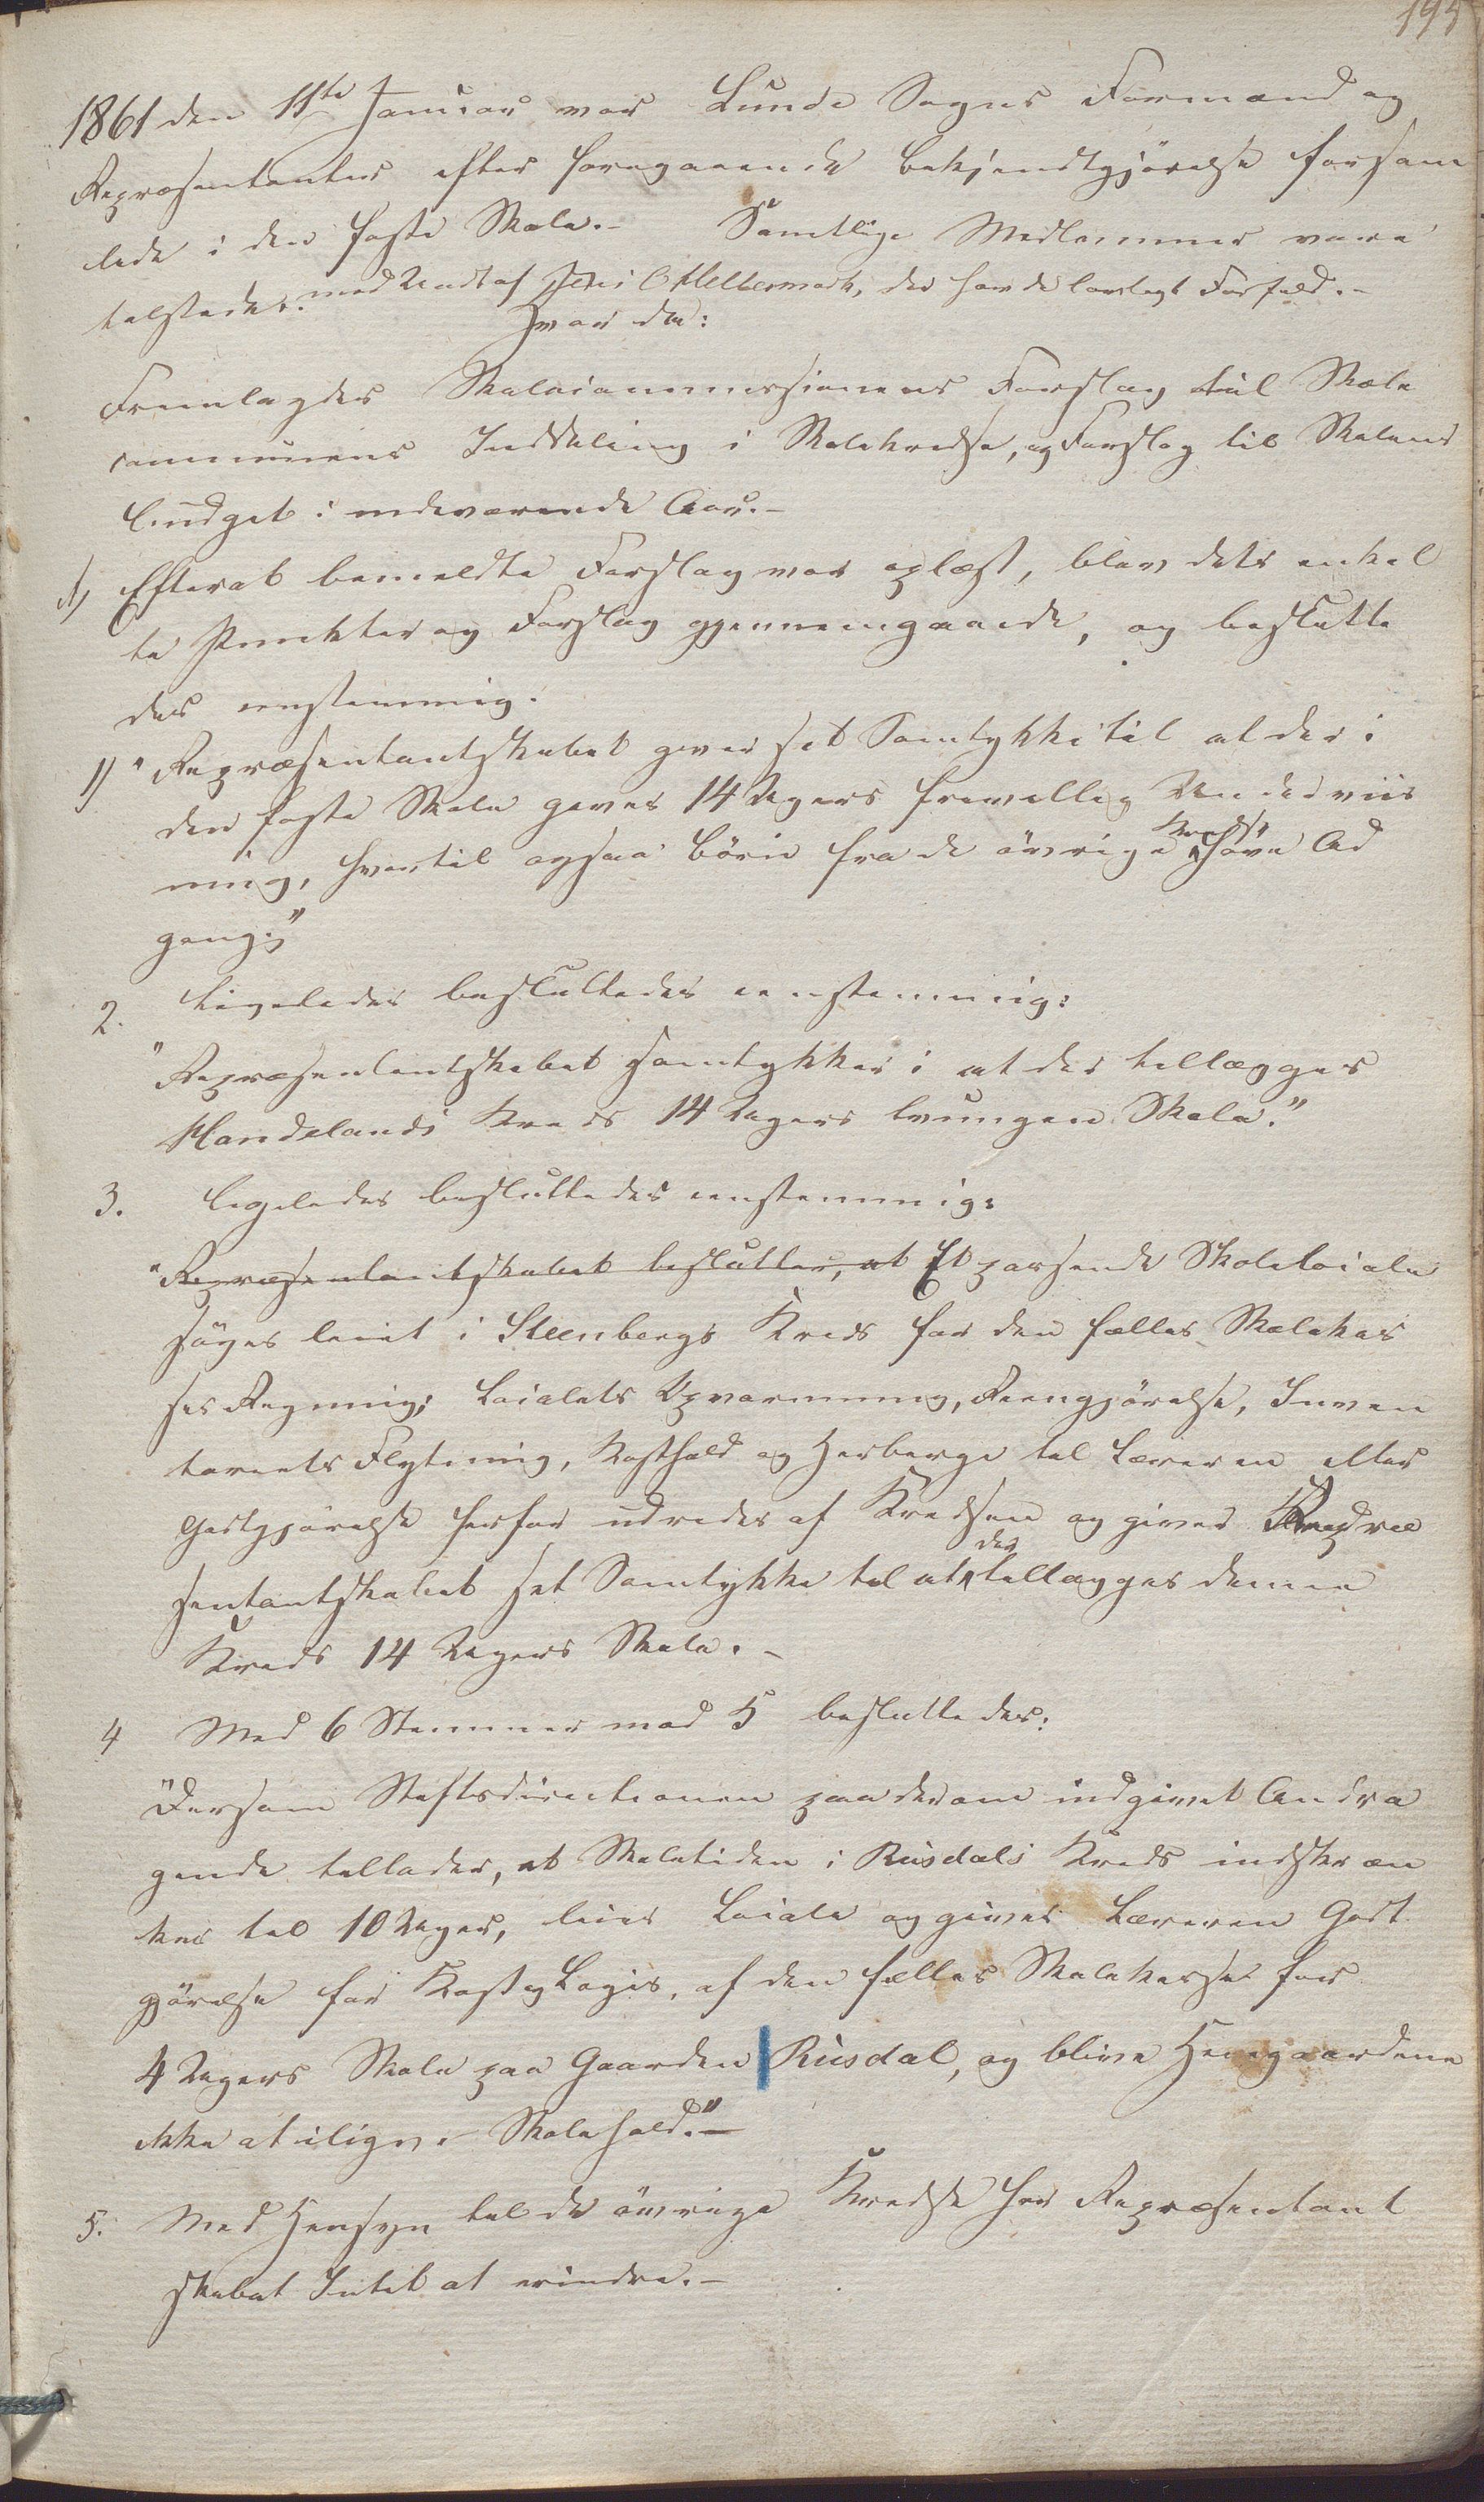 195
1861 den 11te Januar var Lunde Sogns Formænd og
Repræsentanter efter foregaaende Bekjendtgjörelse forsam
lede i den faste Skole. – Samtlige Medlemmer vare
tilstede. med Undt af Jens O Hellesmark, der havde lovligt Forfald. –
Hvor da:
Fremlagdes Skolecommissionens Forslag til Skole
communens Inddeling i Skolekredse, og Forslag til Skolens
Budget i indeværende Aar. –
A, Efterat bemeldte Forslag var oplæst, blev dets enkel
te Punkter og Forslag gjennemgaaede, og beslutte
des eenstemmig:
1) "Repræsentantskabet giver sit Samtykke til at der i
den faste Skole gives 14 Ugers frivillig Underviis
ning, hvortil ogsaa Börn fra de övrige Kredse have Ad
gang."
2. Ligeledes besluttedes eenstemmig:
"Repræsentantskabet samtykker i at der tillægges
Handelands Kreds 14 Ugers tvungen Skole."
3. Ligeledes besluttedes eenstemmig:
"Repræsentantskabet beslutter, at Et passende Skolelocale
söges leiet i Steenbergs Kreds for den fælles Skolekas
ses Regning; Localets Opvarmning, Reengjörelse, Inven
tariets Flytning, Kosthold og Herberge til Læreren eller
Godtgjörelse herfor udredes af Kredsen og giver Repræ
sentantskabet sit Samtykke til at der tillægges denne
Kreds 14 Ugers Skole. –
4 Med 6 Stemmer mod 5 besluttedes:
"Dersom Stiftsdirectionen paa derom indgivet Andra
gende tillader, at Skoletiden i Rusdals Kreds indskræn
kes til 10 Uger, leies Locale og gives Læreren Godt
gjörelse for Kost og Logis, af den fælles Skolekasse for
4 Ugers Skole paa Gaarden Rusdal, og blive Heiegaardene
ikke at iligne Skolehold." –
5. Med Hensyn til de övrige Kredse har Repræsentant
skabet Intet at erindre. –